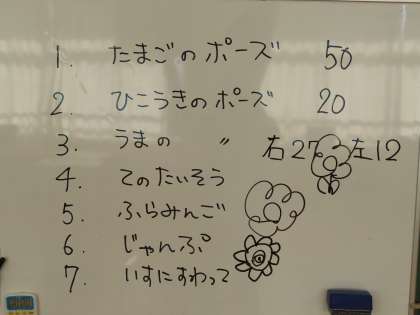 1. たまごのポーズ 50
2. ひこうきのポーズ 20
3. うまの 〃 右27 左12
4. てのたいそう
5. ふらみんご
6. じゃんぷ
7. いすにすわって